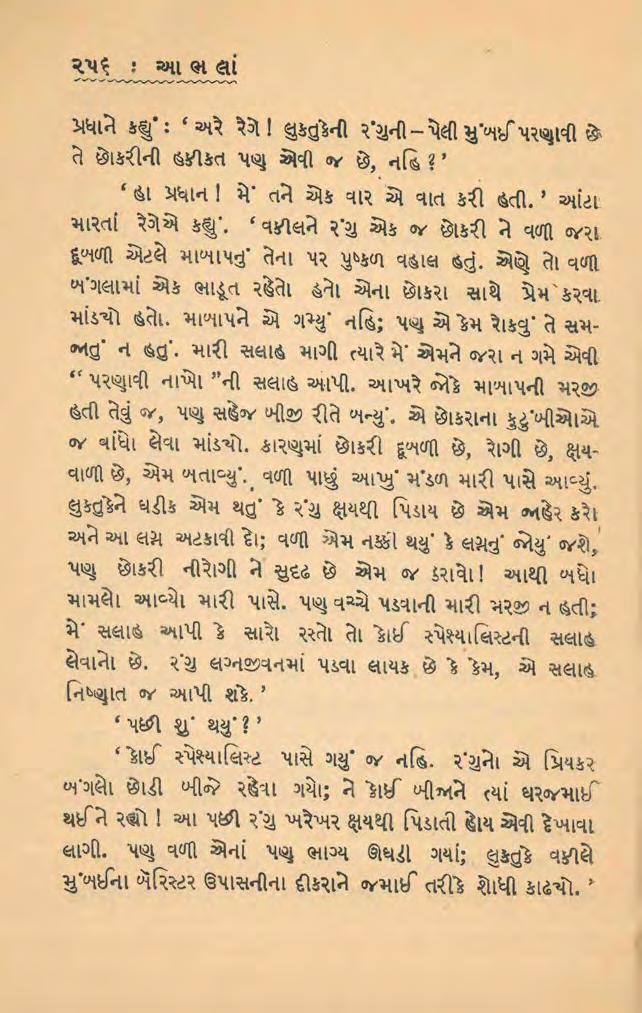 ૨૫૬ : આ ભ લાં
પ્રધાને કહ્યું : ‘ અરે રેગે ! લુકતુકેની રંગુની – પેલી મુંબઈ પરણાવી છે
તે છોકરીની હકીકત પણ એવી જ છે, નહિ ? ’
‘ હા પ્રધાન ! મેં તને એક વાર એ વાત કરી હતી. ’ આંટા
મારતાં રેગેએ કહ્યું. ‘ વકીલને રંગુ એક જ છોકરી ને વળી જરા
દૂબળી એટલે માબાપનું તેના પર પુષ્કળ વહાલ હતું. એણે તો વળી
બંગલામાં એક ભાડૂત રહેતો હતો એના છોકરા સાથે પ્રેમ કરવા
માંડ્યો હતો. માબાપને એ ગમ્યું નહિ; પણ એ કેમ રોકવું તે સમ-
જાતું ન હતું. મારી સલાહ માગી ત્યારે મેં એમને જરા ન ગમે એવી
“ પરણાવી નાખો ”ની સલાહ આપી. આખરે જોકે માબાપની મરજી
હતી તેવું જ, પણ સહેજ બીજી રીતે બન્યું. એ છોકરાના કુટુંબીઓએ
જ વાંધો લેવા માંડ્યો. કારણમાં છોકરી દૂબળી છે, રોગી છે, ક્ષય-
વાળી છે, એમ બતાવ્યું. વળી પાછું આખું મંડળ મારી પાસે આવ્યું.
લુકતુકેને ઘડીક એમ થતું કે રંગુ ક્ષયથી પિડાય છે એમ જાહેર કરો
અને આ લગ્ન અટકાવી દો; વળી એમ નક્કી થયું કે લગ્નનું જોયું જશે,
પણ છોકરી નીરોગી ને સુદૃઢ છે એમ જ ઠરાવો ! આથી બધો
મામલો આવ્યો મારી પાસે. પણ વચ્ચે પડવાની મારી મરજી ન હતી;
મેં સલાહ આપી કે સારો રસ્તો તો કોઈ સ્પેશ્યાલિસ્ટની સલાહ
લેવાનો છે. રંગુ લગ્નજીવનમાં પડવા લાયક છે કે કેમ, એ સલાહ
નિષ્ણાત જ આપી શકે. ’
‘ પછી શું થયું ? ’
‘ કોઈ સ્પેશ્યાલિસ્ટ પાસે ગયું જ નહિ. રંગુનો એ પ્રિયકર
બંગલો છોડી બીજે રહેવા ગયો; ને કોઈ બીજાને ત્યાં ઘરજમાઈ
થઈને રહ્યો ! આ પછી રંગુ ખરેખર ક્ષયથી પિડાતી હોય એવી દેખાવા
લાગી. પણ વળી એનાં પણ ભાગ્ય ઊઘડી ગયાં; લુકતુકે વકીલે
મુંબઈના બૅરિસ્ટર ઉપાસનીના દીકરાને જમાઈ તરીકે શોધી કાઢ્યો. ’